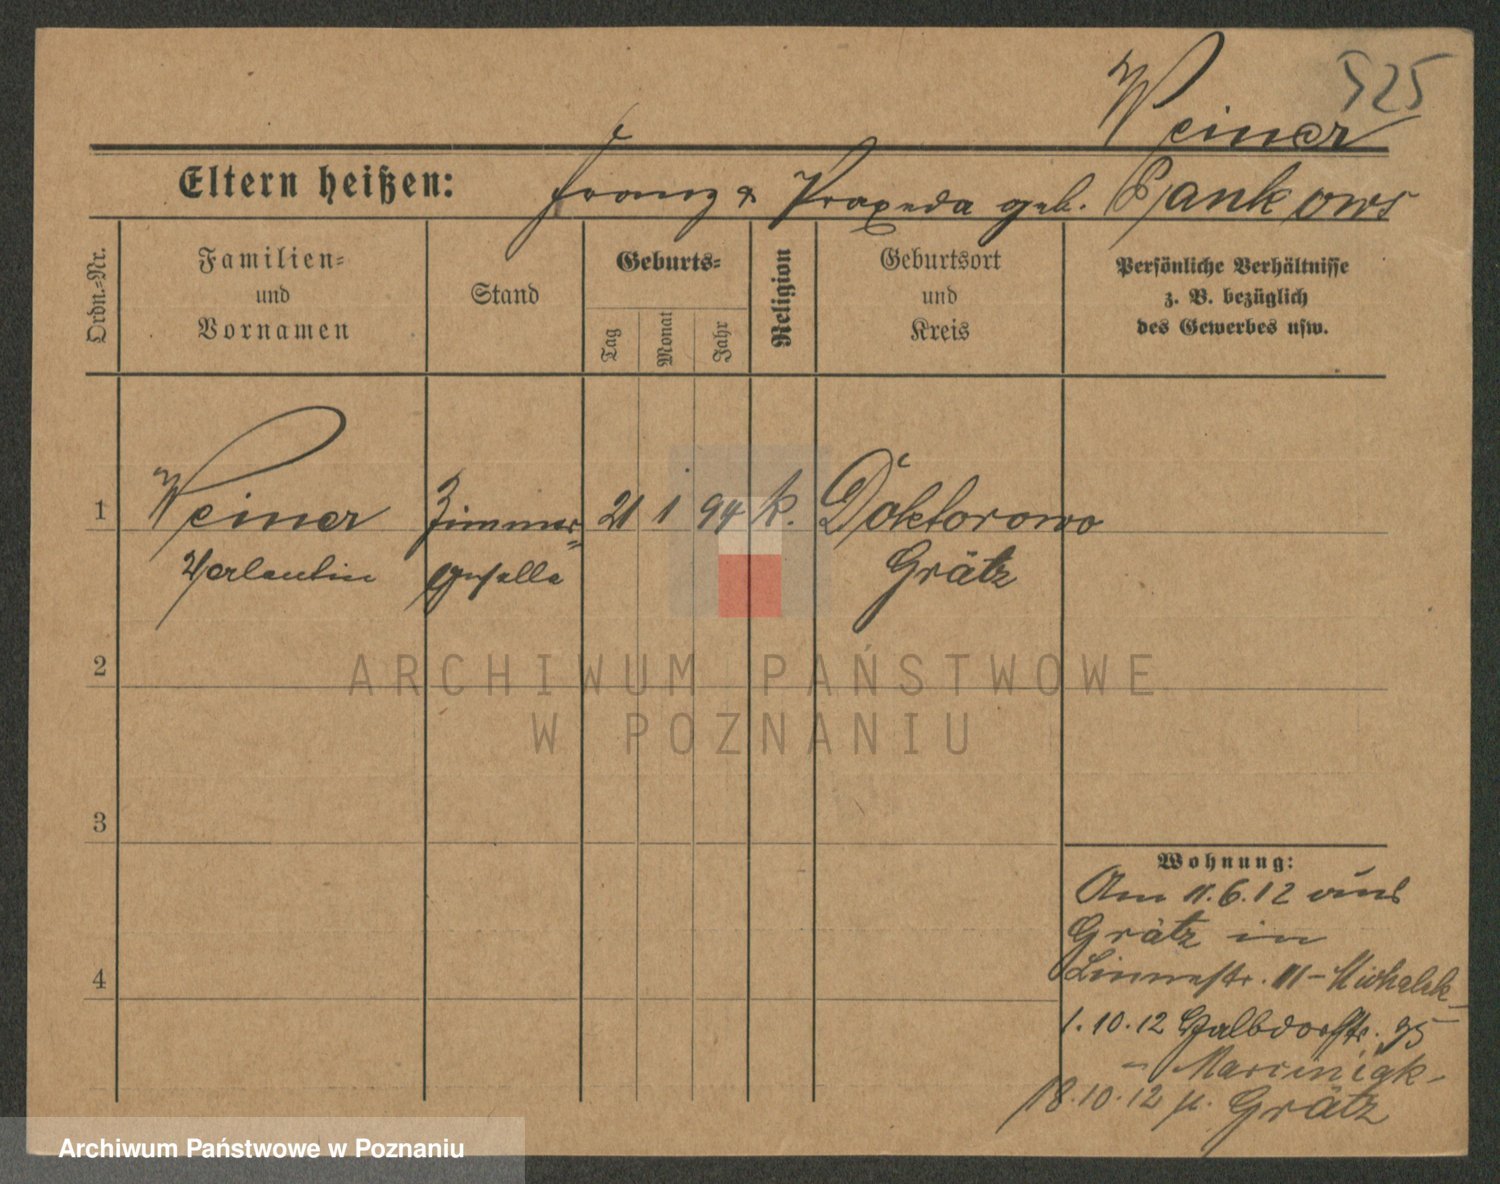 525
Weiner
Eltern heißen: Franz & Praxeda geb.
Ordn.-Nr.
Familien-
und
Vornamen
Stand
Geburts-
Tag
Monat
Jahr
Religion
Geburtsort
und
Kreis
Persönliche Verhältnisse
z. B. bezüglich
des Gewerbes usw.
1 Weiner Zimmer- 21 1 94 k. Doktorowo
geselle Grätz
2
ARCHIWUM PAŃSTWOWE
W POZNANIU
3
Wohnung:
Am 11.6.12 aus
Grätz in
4
1.10.12
- Marciniak -
18.10.12 n. Grätz
Archiwum Państwowe w Poznaniu